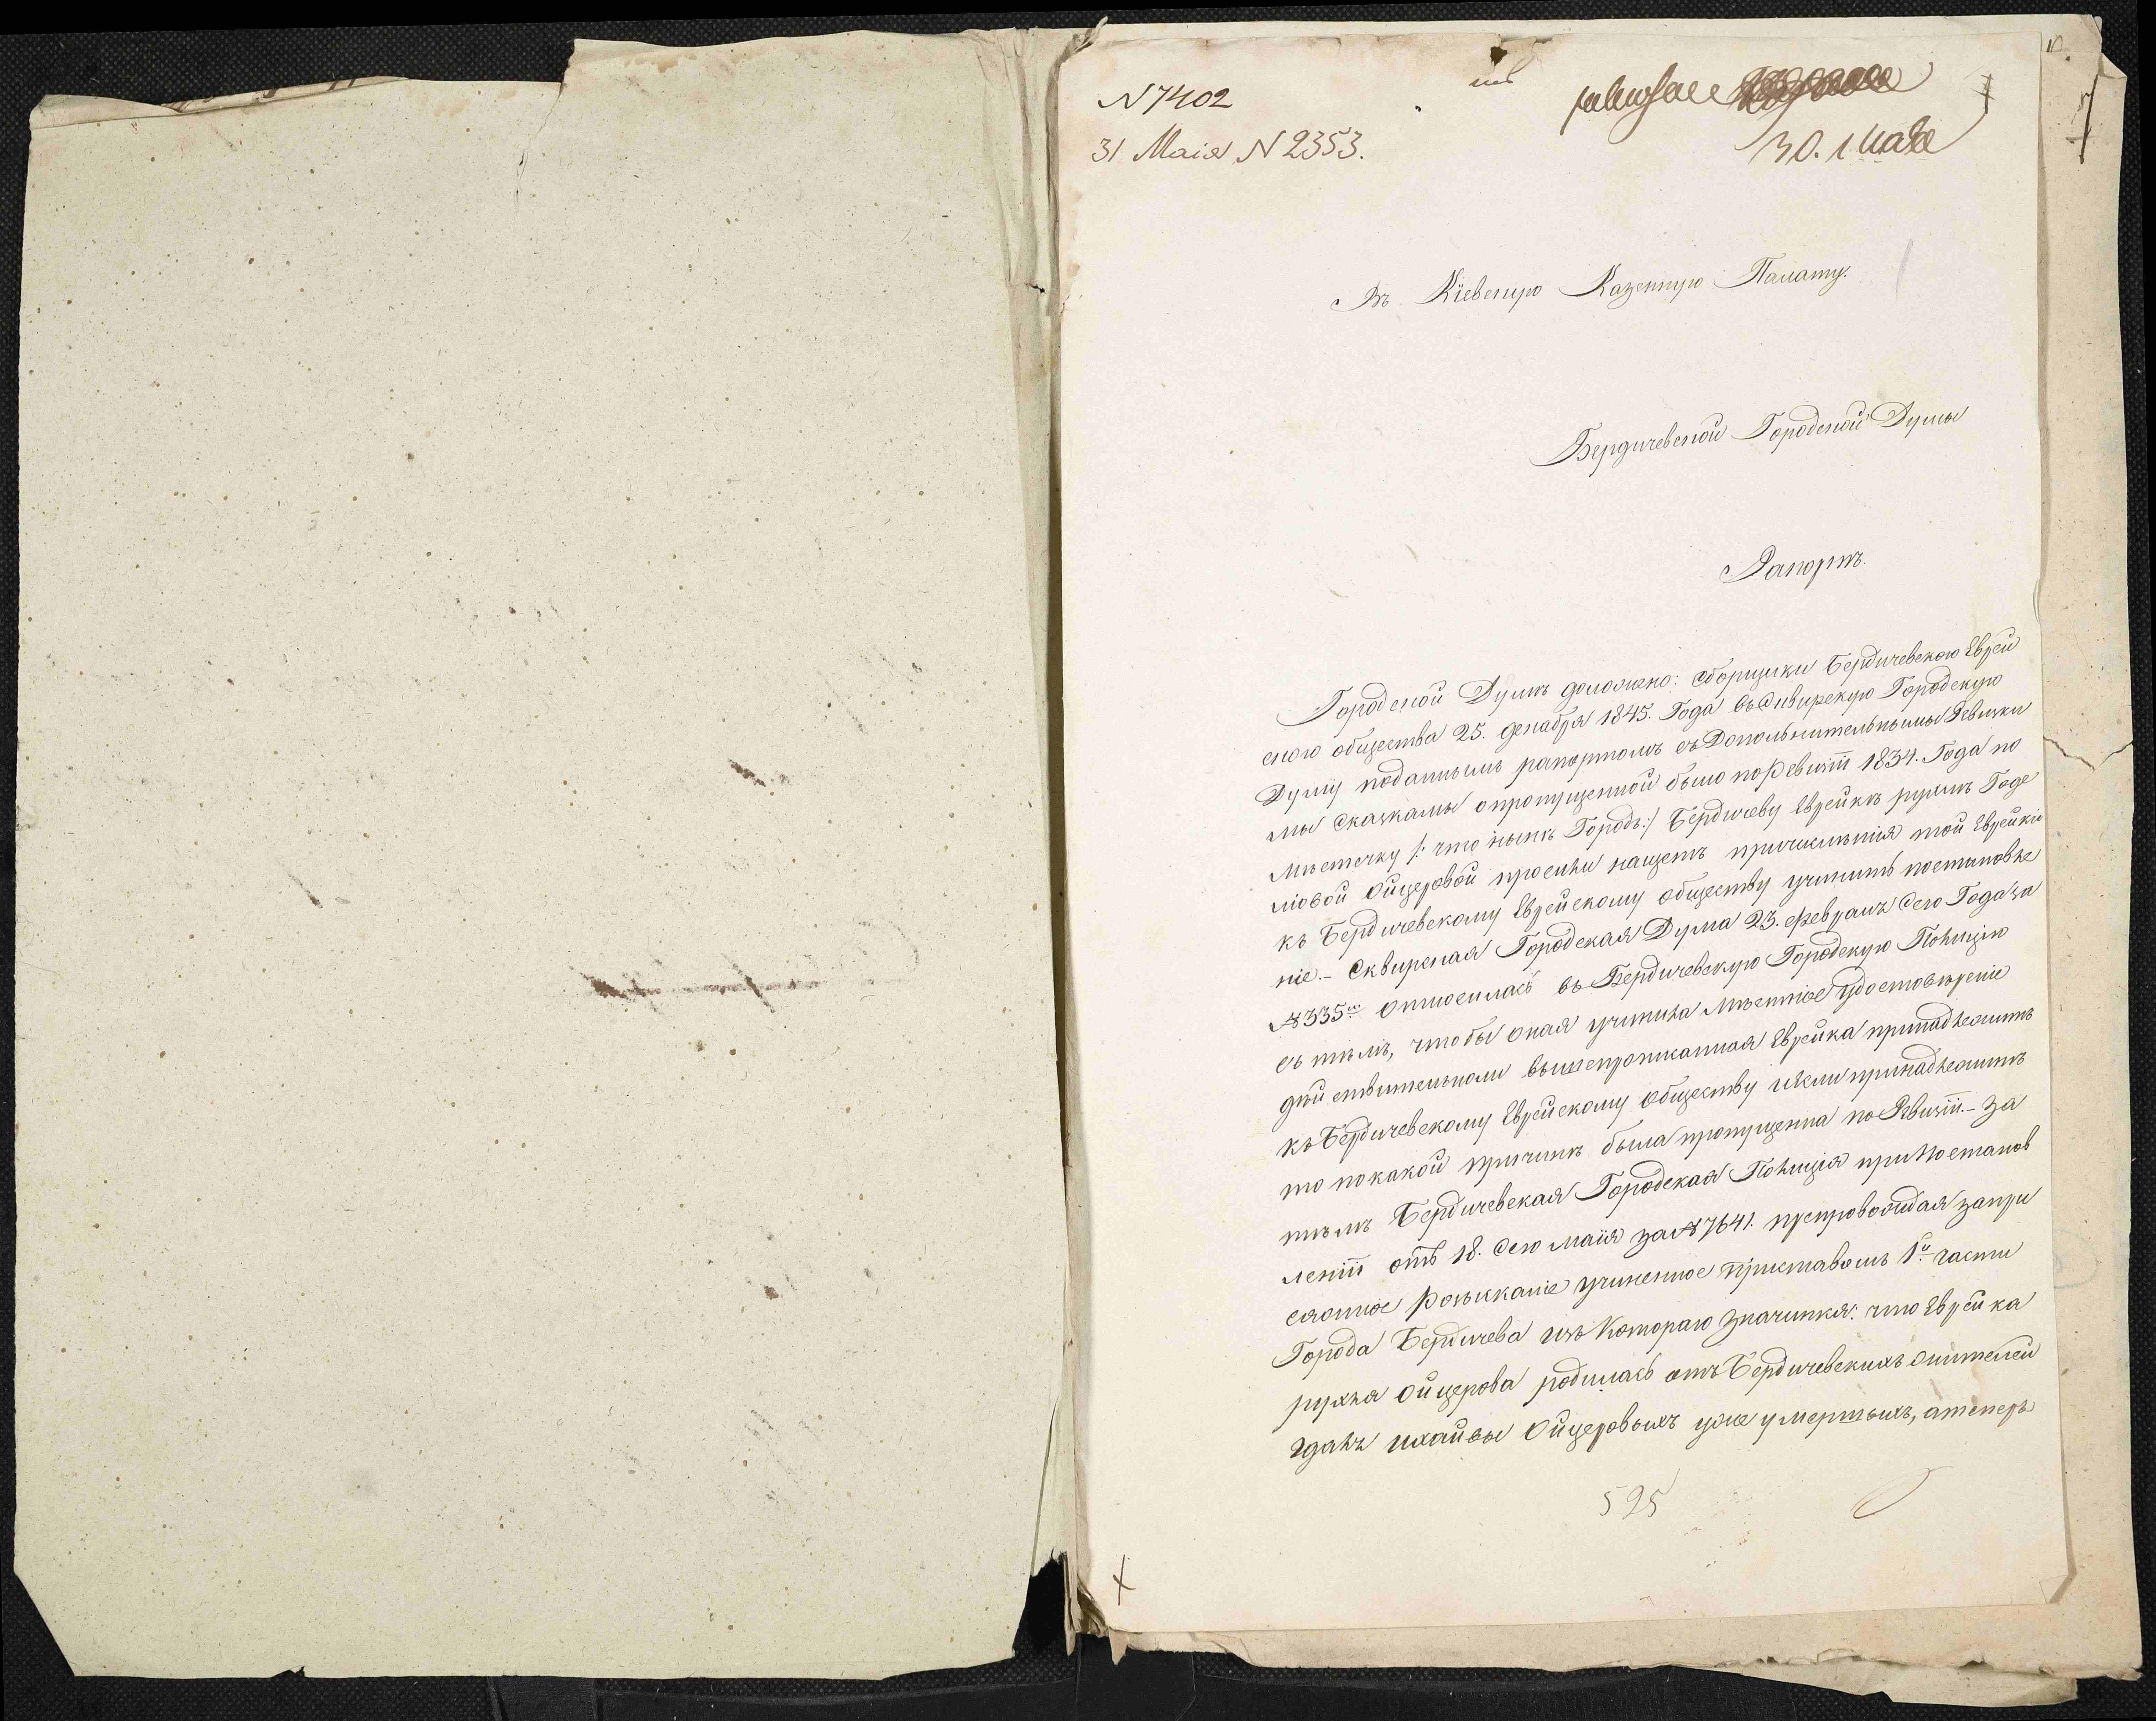 N 7402
31 Маія N 2353.
30. Мая
1
Въ Кіевскую Казенную Палату.
Бердичевской Городской Думы
Рапортъ.
Городской Думѣ доложено: сборщики Бердичевского Еврей
ского общества 25. декабря 1845. Года въ Сквирскую Городскую
Думу поданнымъ рапортомъ съ Дополнительными Ревизки
мы Сказкамы о пропущенной было по Ревизіи 1834. Года по
Мѣстечку /: что нынѣ Городъ:/ Бердичеву Еврейкѣ рухлѣ Годе
лювой Ойцеровой просили нащетъ причисленія той Еврейки
къ Бердичевскому Еврейскому обществу учинить постановле
ніе. - Сквирская Городская Дума 23. февраля Сего Года за
№ 335м относилась въ Бердичевскую Городскую Полицію
съ тѣмъ, чтобы оная учинила мѣстное удостовѣреніе
дѣйствительноли вышепрописанная Еврейка принадлежитъ
къ Бердичевскому Еврейскому обществу и если принадлежитъ
то по какой причинѣ была пропущенна по Ревизіи. - За
тѣмъ Бердичевская Городская Полиція при Постанов
леніи отъ 18. Сего маія за № 7641. препровождая запри
сяжное Розысканіе учиненное Приставомъ 1й части
Города Бердичева изъ Котораго Значится: что Еврейка
рухля Ойцерова родилась отъ Бердичевскихъ жителей
Гдаля и хайвы Ойцеровыхъ уже умершыхъ, а теперь
525